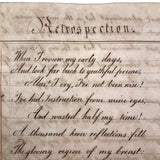 Retrospection.
When I review my early days,
And look far back to youthful primes
Alas! I cry, I've not been wise!
I've had Instruction from mine eyes,
And wasted half my time!
A thousand keen reflections fill
The gloomy region of my breast: